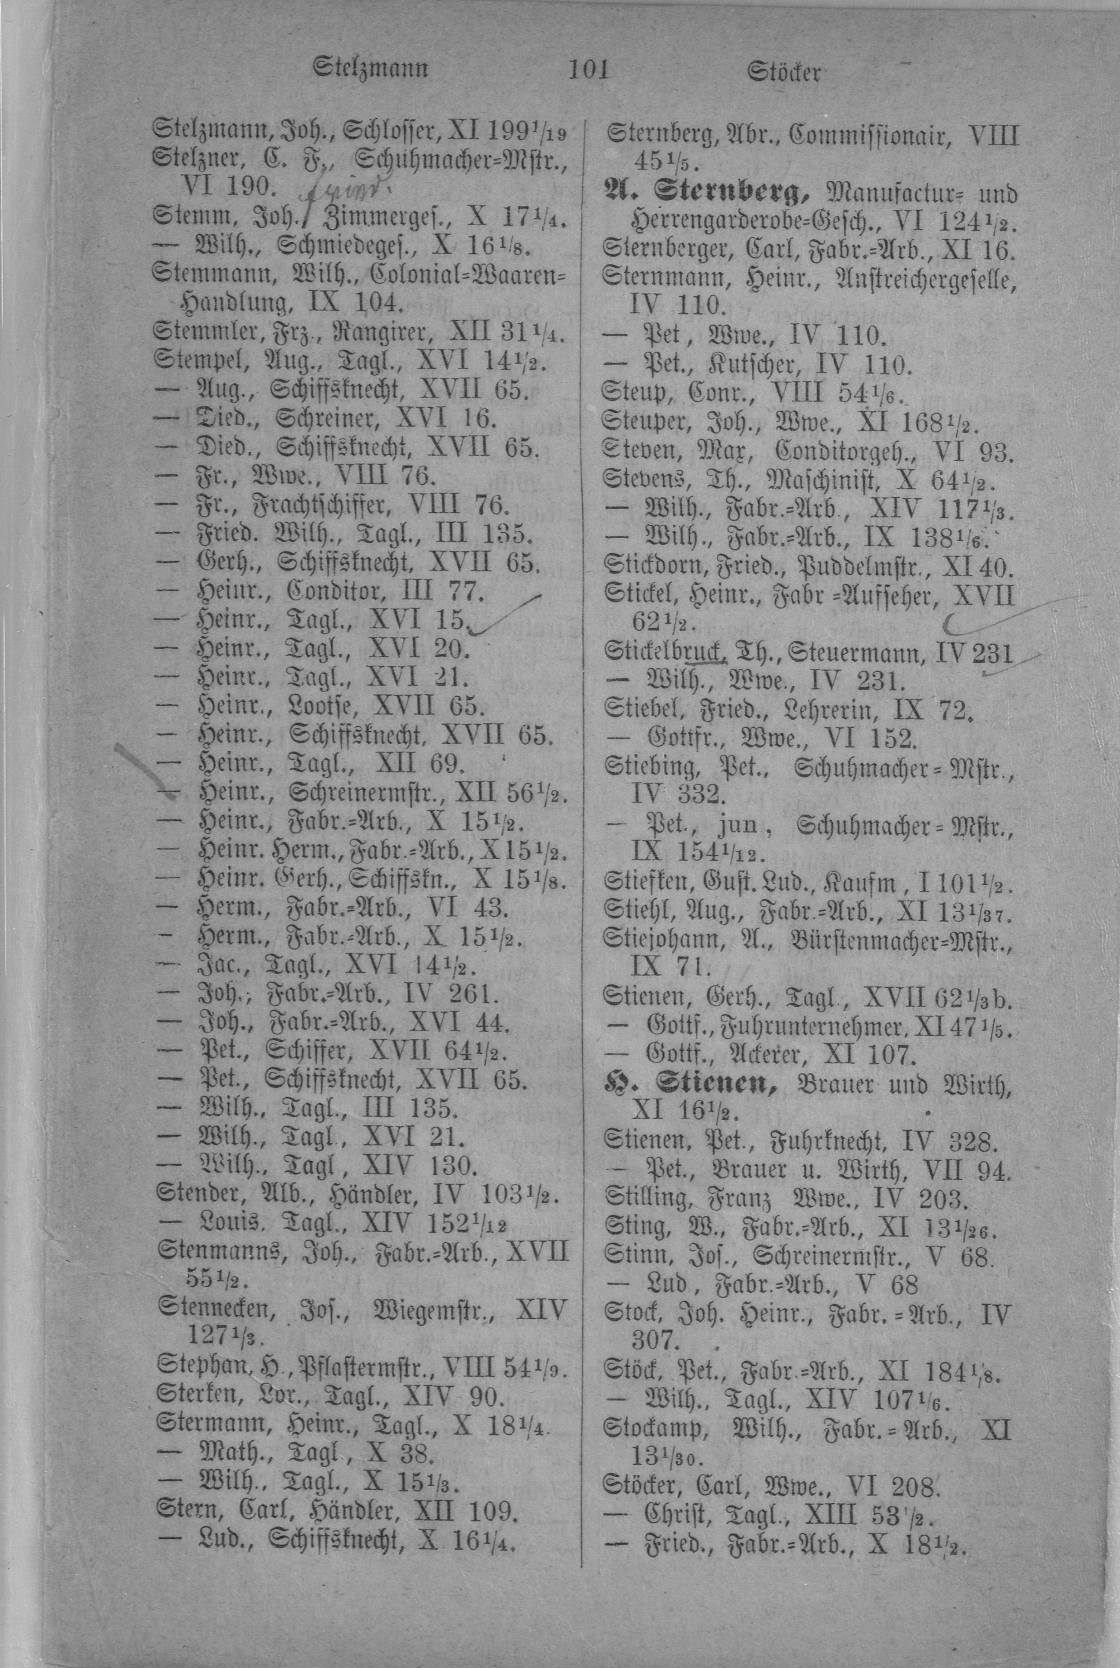 Stelzmann 101 Stöcker
Stelzmann, Joh., Schlosser, XI 199 1/19
Stelzner, C. F., Schuhmacher=Mstr.,
VI 190.
Stemm, Joh., Zimmerges., X 17 1/4.
— Wilh., Schmiedeges., X 16 1/8.
Stemmann, Wilh., Colonial=Waaren=
Handlung, IX 104.
Stemmler, Frz., Rangirer, XII 31 1/4.
Stempel, Aug., Tagl., XVI 14 1/2.
— Aug., Schiffsknecht, XVII 65.
— Died., Schreiner, XVI 16.
— Died., Schiffsknecht, XVII 65.
— Fr., Wwe., VIII 76.
— Fr., Frachtschiffer, VIII 76.
— Fried. Wilh., Tagl., III 135.
— Gerh., Schiffsknecht, XVII 65.
— Heinr., Conditor, III 77.
— Heinr., Tagl., XVI 15.
— Heinr., Tagl., XVI 20.
— Heinr., Tagl., XVI 21.
— Heinr., Lootse, XVII 65.
— Heinr., Schiffsknecht, XVII 65.
— Heinr., Tagl., XII 69.
— Heinr., Schreinermstr., XII 56 1/2.
— Heinr., Fabr.=Arb., X 15 1/2.
— Heinr. Herm., Fabr.=Arb., X 15 1/2.
— Heinr. Gerh., Schiffskn., X 15 1/8.
— Herm., Fabr.=Arb., VI 43.
— Herm., Fabr.=Arb., X 15 1/2.
— Jac., Tagl., XVI 14 1/2.
— Joh., Fabr.=Arb., IV 261.
— Joh., Fabr.=Arb., XVI 44.
— Pet., Schiffer, XVII 64 1/2.
— Pet., Schiffsknecht, XVII 65.
— Wilh., Tagl., III 135.
— Wilh., Tagl., XVI 21.
— Wilh., Tagl., XIV 130.
Stender, Alb., Händler, IV 103 1/2.
— Louis, Tagl., XIV 152 1/12
Stenmanns, Joh., Fabr.=Arb., XVII
55 1/2.
Stennecken, Jos., Wiegemstr., XIV
127 1/3.
Stephan, H., Pflastermstr., VIII 54 1/9.
Sterken, Lor., Tagl., XIV 90.
Stermann, Heinr., Tagl., X 18 1/4.
— Math., Tagl., X 38.
— Wilh., Tagl., X 15 1/3.
Stern, Carl, Händler, XII 109.
— Lud., Schiffsknecht, X 16 1/4.
Sternberg, Abr., Commissionair, VIII
45 1/5.
A. Sternberg, Manufactur= und
Herrengarderobe=Gesch., VI 124 1/2.
Sternberger, Carl, Fabr.=Arb., XI 16.
Sternmann, Heinr., Anstreichergeselle,
IV 110.
— Pet., Wwe., IV 110.
— Pet., Kutscher, IV 110.
Steup, Conr., VIII 54 1/6.
Steuper, Joh., Wwe., XI 168 1/2.
Steven, Max, Conditorgeh., VI 93.
Stevens, Th., Maschinist, X 64 1/2.
— Wilh., Fabr.=Arb., XIV 117 1/3.
— Wilh., Fabr.=Arb., IX 138 1/6.
Stickdorn, Fried., Puddelmstr., XI 40.
Stickel, Heinr., Fabr=Aufseher, XVII
62 1/2.
Stickelbruck, Th., Steuermann, IV 231
— Wilh., Wwe., IV 231.
Stiebel, Fried., Lehrerin, IX 72.
— Gottfr., Wwe., VI 152.
Stiebing, Pet., Schuhmacher=Mstr.,
IV 332.
— Pet., jun, Schuhmacher=Mstr.,
IX 154 1/12.
Stiefken, Gust. Lud., Kaufm., I 101 1/2.
Stiehl, Aug., Fabr.=Arb., XI 13 1/37.
Stiejohann, A., Bürstenmacher=Mstr.,
IX 71.
Stienen, Gerh., Tagl., XVII 62 1/3 b.
— Gottf., Fuhrunternehmer, XI 47 1/5.
— Gottf., Ackerer, XI 107.
H. Stienen, Brauer und Wirth,
XI 16 1/2.
Stienen, Pet., Fuhrknecht, IV 328.
— Pet., Brauer u. Wirth, VII 94.
Stilling, Franz Wwe., IV 203.
Sting, W., Fabr.=Arb., XI 13 1/26.
Stinn, Jos., Schreinermstr., V 68.
— Lud, Fabr.=Arb., V 68
Stock, Joh. Heinr., Fabr.=Arb., IV
307.
Stöck, Pet., Fabr.=Arb., XI 184 1/8.
— Wilh., Tagl., XIV 107 1/6.
Stockamp, Wilh., Fabr.=Arb., XI
13 1/30.
Stöcker, Carl, Wwe., VI 208.
— Christ, Tagl., XIII 53 1/2.
— Fried., Fabr.=Arb., X 18 1/2.